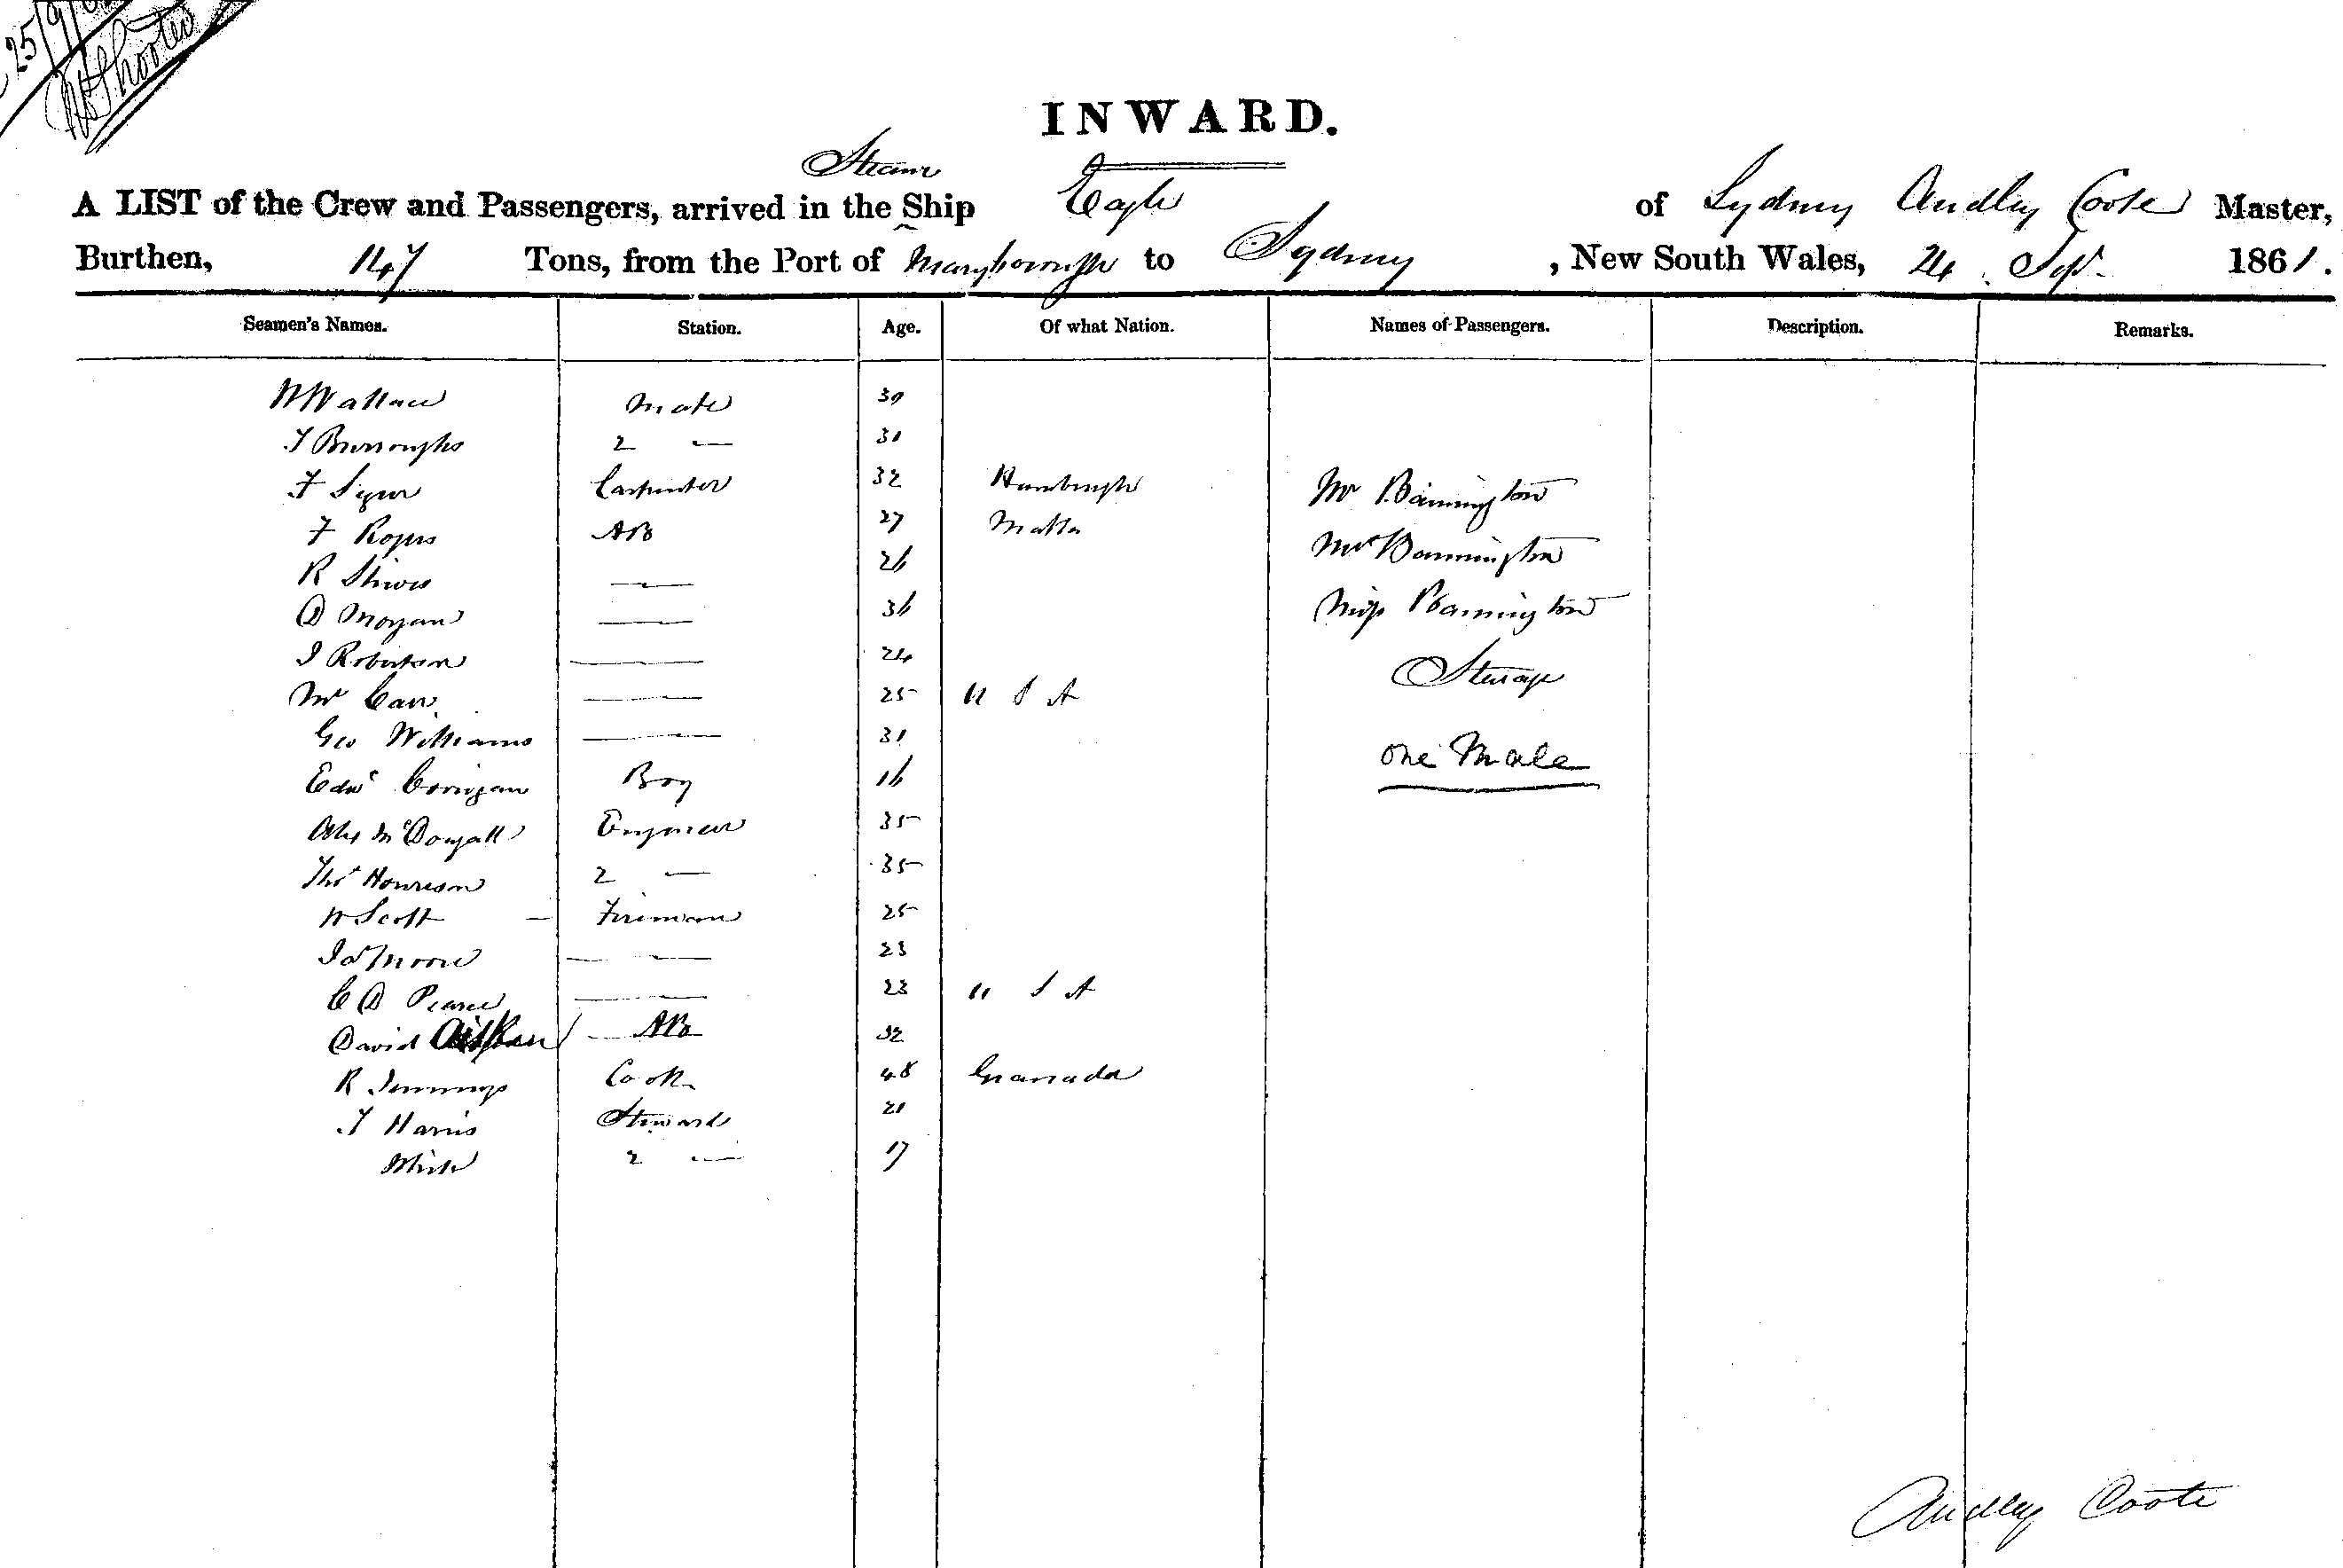 25/9/61
INWARD.
Steam
A LIST of the Crew and Passengers, arrived in the Ship Eagle of Sydney Audley Coote Master,
Burthen, 147 Tons, from the Port of Maryborough to Sydney , New South Wales, 24 Sep. 1861.
Seamen's Names. Station. Age. Of what Nation. Names of Passengers. Description. Remarks.
W Wallace Mate 30
T Burroughs 2 — 31
F Carpenter 32 Hamburgh Mr Bannington
F Rogers AB 27 Malta Mrs Bannington
R — 26
D Morgan — 36 Miss Bannington
J Robertson — 24 Steerage
— 25 U S A
Geo Williams — 31 One Male
Edwd Corrigan Boy 16
Alex McDougall Engineer 35
Thos Howieson 2 — 35
W Scott — Fireman 25
Jas Moore — 23
C D Pearce — 23 U S A
David Aitken AB 32
R Jennings Cook 48 Granada
T Harris Steward 21
White 2 — 17
Audley Coote